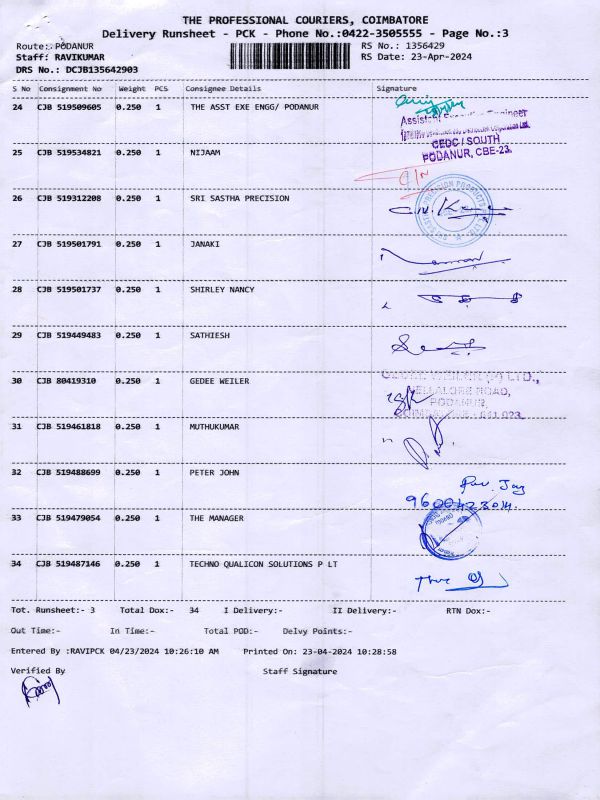 THE PROFESSIONAL COURIERS, COIMBATORE
Delivery Runsheet - PCK - Phone No.:0422-3505555 - Page No.:3
Route: PODANUR
RS No.: 1356429
Staff: RAVIKUMAR
RS Date: 23-Apr-2024
DRS No.: DCJB135642903
S No Consignment No Weight PCS Consignee Details Signature
24 CJB 519509605 0.250 1 THE ASST EXE ENGG/ PODANUR
Assistant Executive Engineer
CEDC / SOUTH
PODANUR, CBE-23.
25 CJB 519534821 0.250 1 NIJAAM
26 CJB 519312208 0.250 1 SRI SASTHA PRECISION
27 CJB 519501791 0.250 1 JANAKI
28 CJB 519501737 0.250 1 SHIRLEY NANCY
29 CJB 519449483 0.250 1 SATHIESH
30 CJB 80419310 0.250 1 GEDEE WEILER
GEDEE WEILER (P) LTD.,
VELLALORE ROAD,
PODANUR,
COIMBATORE - 641 023.
31 CJB 519461818 0.250 1 MUTHUKUMAR
32 CJB 519488699 0.250 1 PETER JOHN
33 CJB 519479054 0.250 1 THE MANAGER
34 CJB 519487146 0.250 1 TECHNO QUALICON SOLUTIONS P LT
Tot. Runsheet:- 3 Total Dox:- 34 I Delivery:- II Delivery:- RTN Dox:-
Out Time:- In Time:- Total POD:- Delvy Points:-
Entered By :RAVIPCK 04/23/2024 10:26:10 AM Printed On: 23-04-2024 10:28:58
Verified By Staff Signature